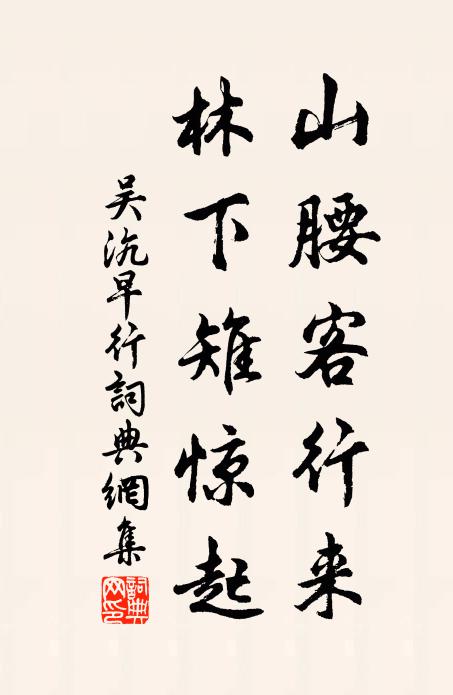 山腰客行来
林下雉惊起
吴沆早行詞典網集
詞典网印